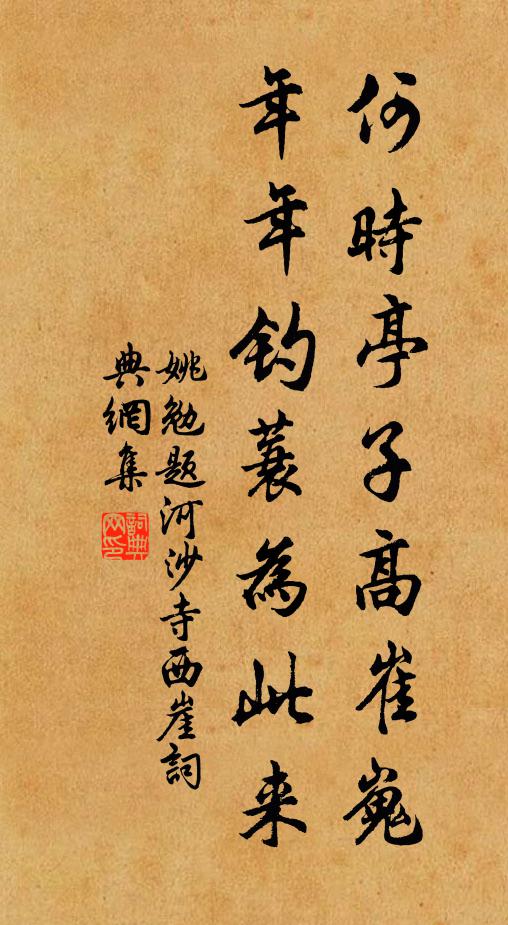 何時亭子高崔嵬
年年釣蓑為此来
姚勉题河沙寺西崖詞
典網集
詞典網印